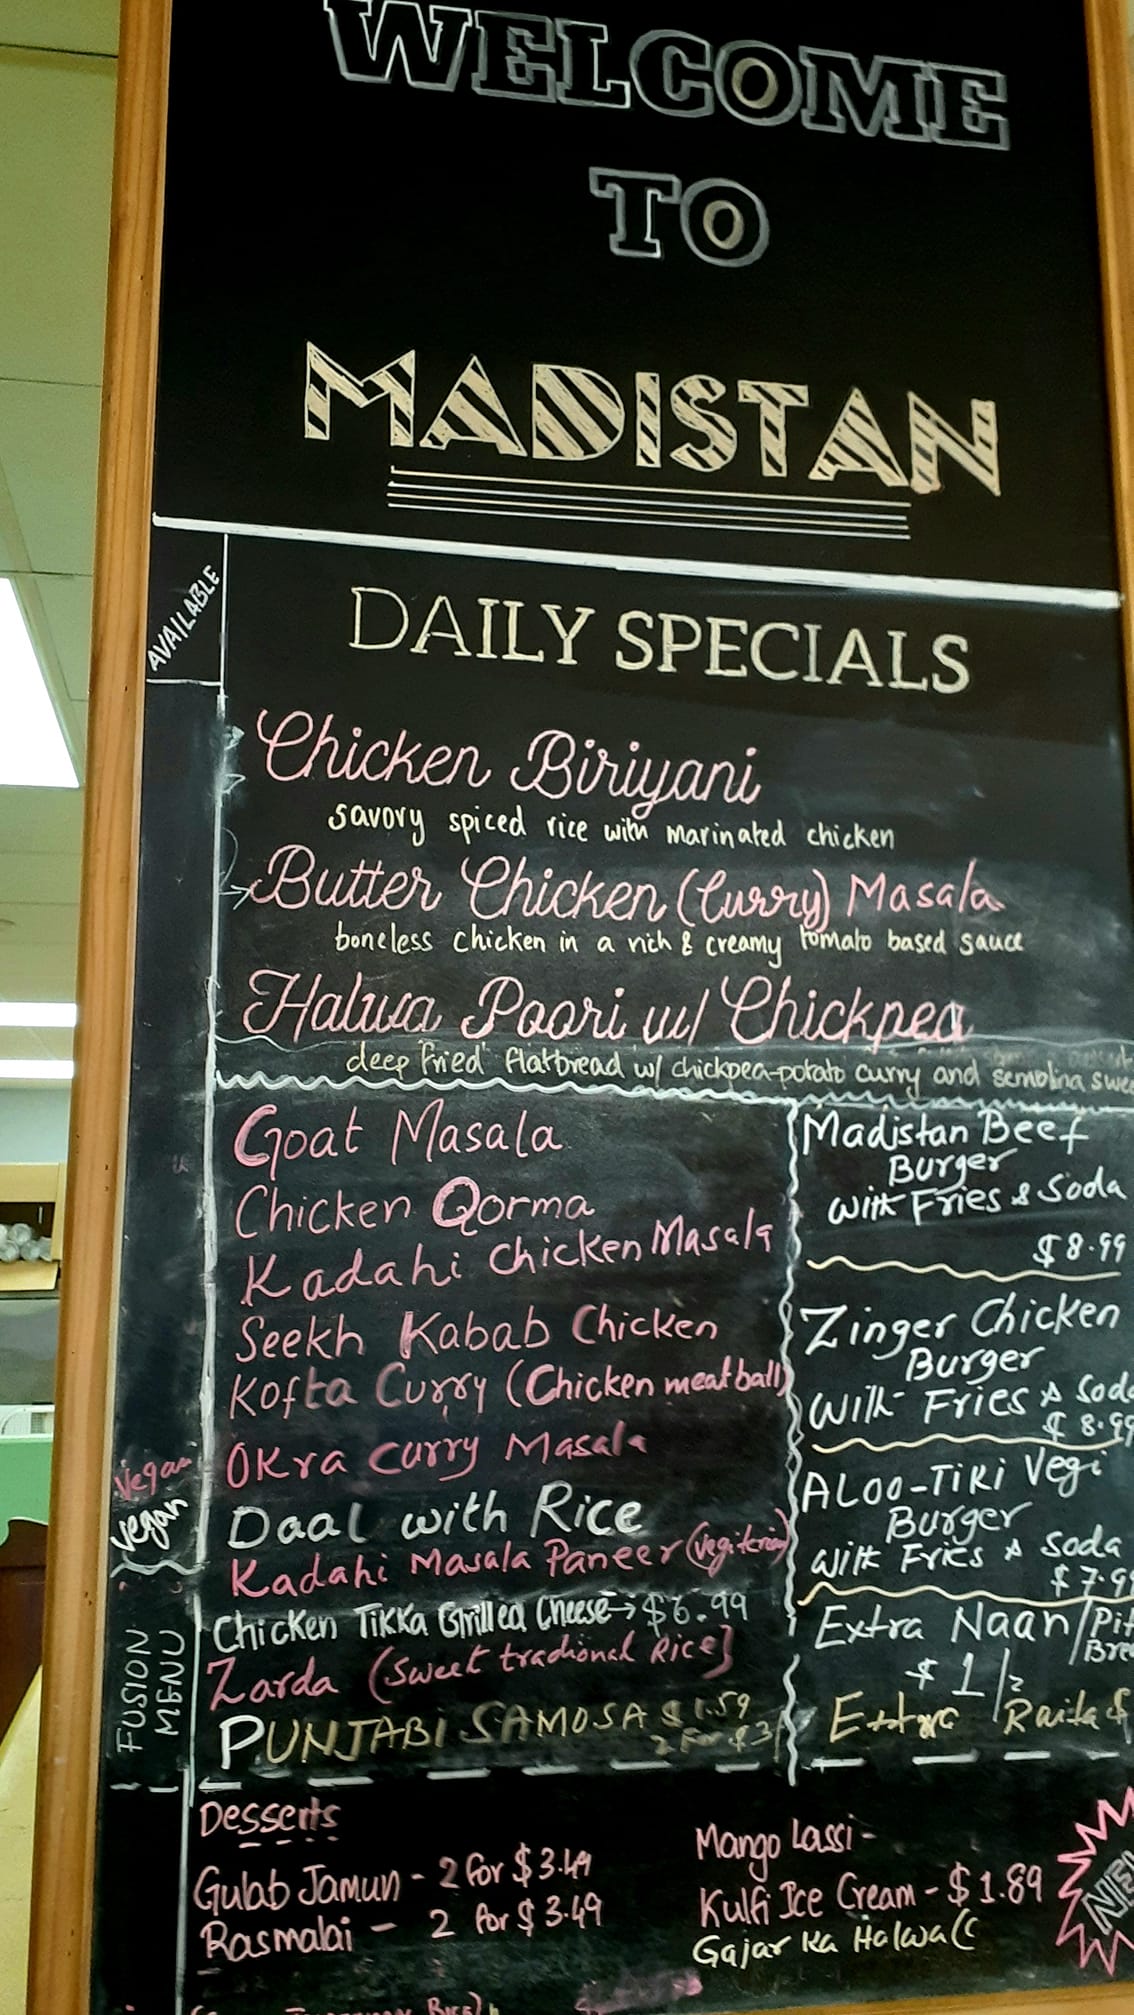 WELCOME
TO
MADISTAN
AVAILABLE
DAILY SPECIALS
Chicken Biriyani
savory spiced rice with marinated chicken
Butter Chicken (Curry) Masala
boneless chicken in a rich & creamy tomato based sauce
Halwa Poori w/ Chickpea
deep fried flatbread w/ chickpea-potato curry and semolina swee
Goat Masala
Chicken Qorma
Kadahi Chicken Masala
Seekh Kabab Chicken
Kofta Curry (Chicken meatball)
Vegan
OKra Curry Masala
Vegan
Daal with Rice
Kadahi Masala Paneer (vegiterian)
FUSION
MENU
Chicken Tikka Grilled Cheese → $6.99
Zarda (Sweet tradional Rice)
PUNJABI SAMOSA $1.59
2 For $3
Madistan Beef
Burger
with Fries & Soda
$8.99
Zinger Chicken
Burger
With Fries & Soda
$8.99
ALOO-TiKi Vegi
Burger
With Fries & Soda
$7.99
Extra Naan/Pit
Bre
$1/2
Extra Raita
Desserts
Gulab Jamun - 2 for $3.49
Rasmalai - 2 for $3.49
Mango Lassi -
Kulfi Ice Cream - $1.89
Gajar Ka Halwa (
NEW
Rice)